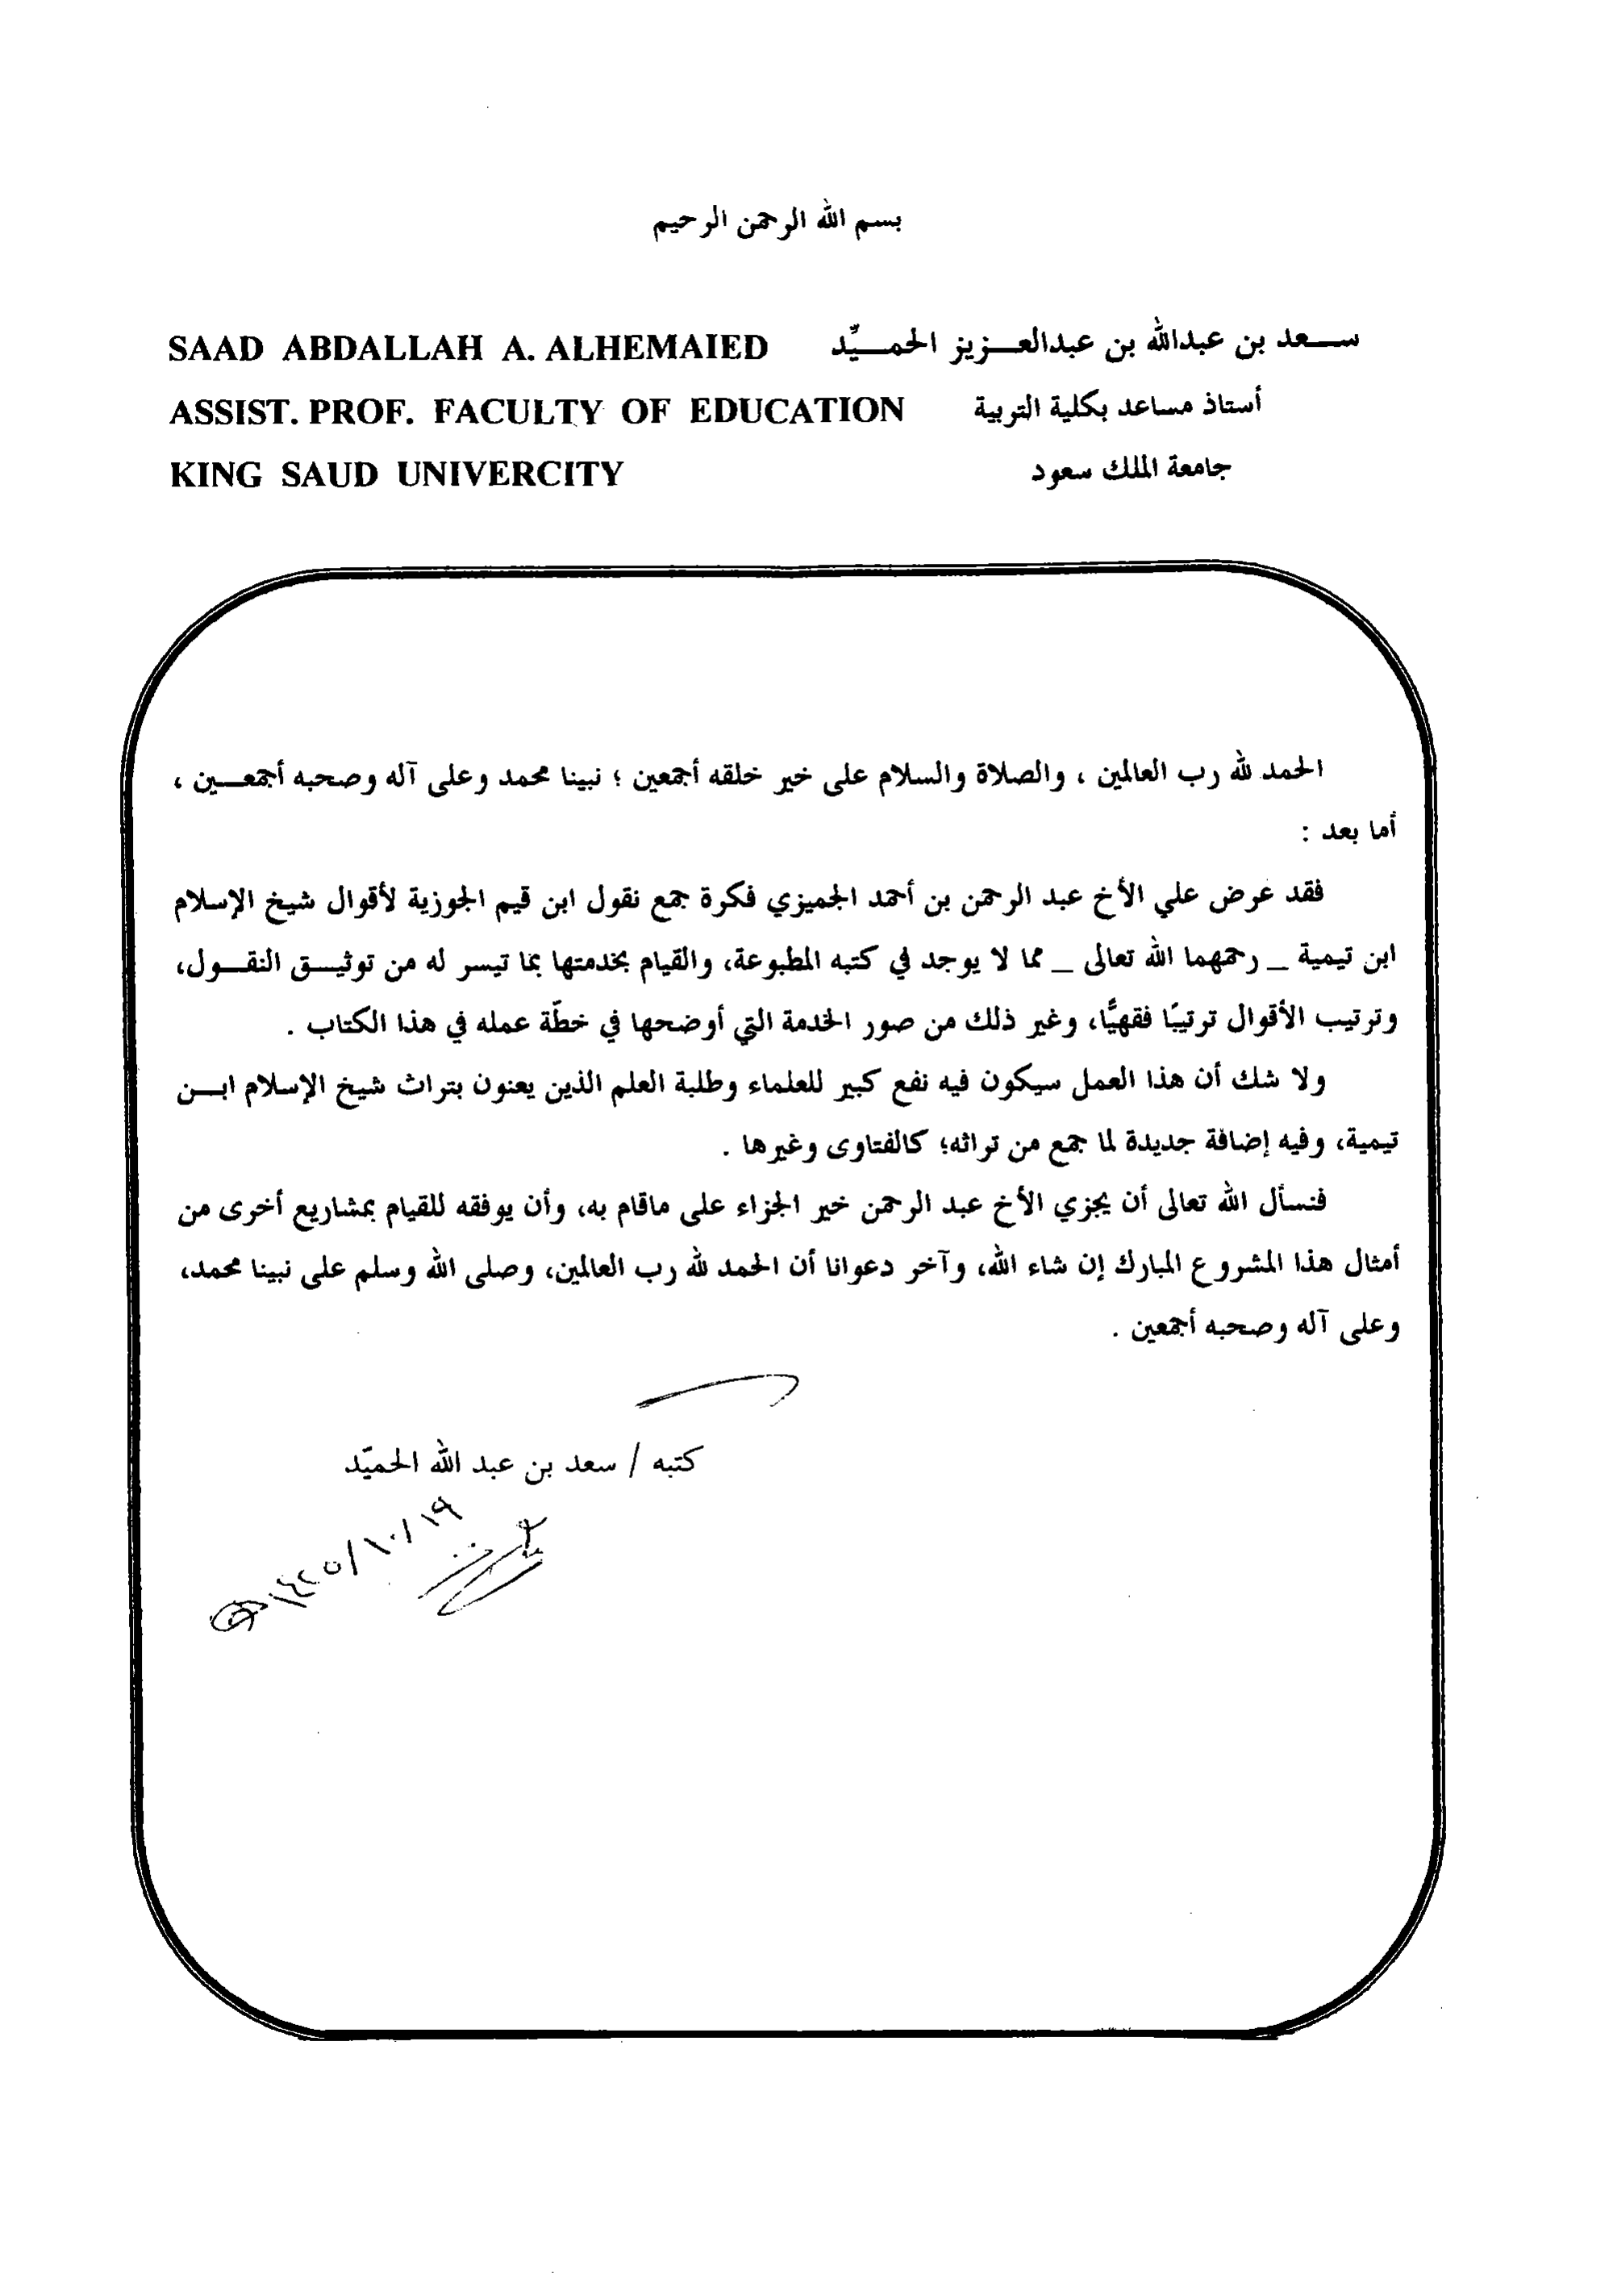 بسم الله الرحمن الرحيم
سعد بن عبدالله بن عبدالعزيز الحميِّد
SAAD ABDALLAH A. ALHEMAIED
أستاذ مساعد بكلية التربية
ASSIST. PROF. FACULTY OF EDUCATION
جامعة الملك سعود
KING SAUD UNIVERCITY
الحمد لله رب العالمين ، والصلاة والسلام على خير خلقه أجمعين ؛ نبينا محمد وعلى آله وصحبه أجمعين ،
أما بعد :
فقد عرض علي الأخ عبد الرحمن بن أحمد الجميزي فكرة جمع نقول ابن قيم الجوزية لأقوال شيخ الإسلام
ابن تيمية _ رحمهما الله تعالى _ مما لا يوجد في كتبه المطبوعة، والقيام بخدمتها بما تيسر له من توثيق النقول،
وترتيب الأقوال ترتيبًا فقهيًّا، وغير ذلك من صور الخدمة التي أوضحها في خطّة عمله في هذا الكتاب .
ولا شك أن هذا العمل سيكون فيه نفع كبير للعلماء وطلبة العلم الذين يعنون بتراث شيخ الإسلام ابن
تيمية، وفيه إضافة جديدة لما جمع من تراثه؛ كالفتاوى وغيرها .
فنسأل الله تعالى أن يجزي الأخ عبد الرحمن خير الجزاء على ماقام به، وأن يوفقه للقيام بمشاريع أخرى من
أمثال هذا المشروع المبارك إن شاء الله، وآخر دعوانا أن الحمد لله رب العالمين، وصلى الله وسلم على نبينا محمد،
وعلى آله وصحبه أجمعين .
كتبه / سعد بن عبد الله الحميّد
١٩/١٠/١٤٢٥هـ